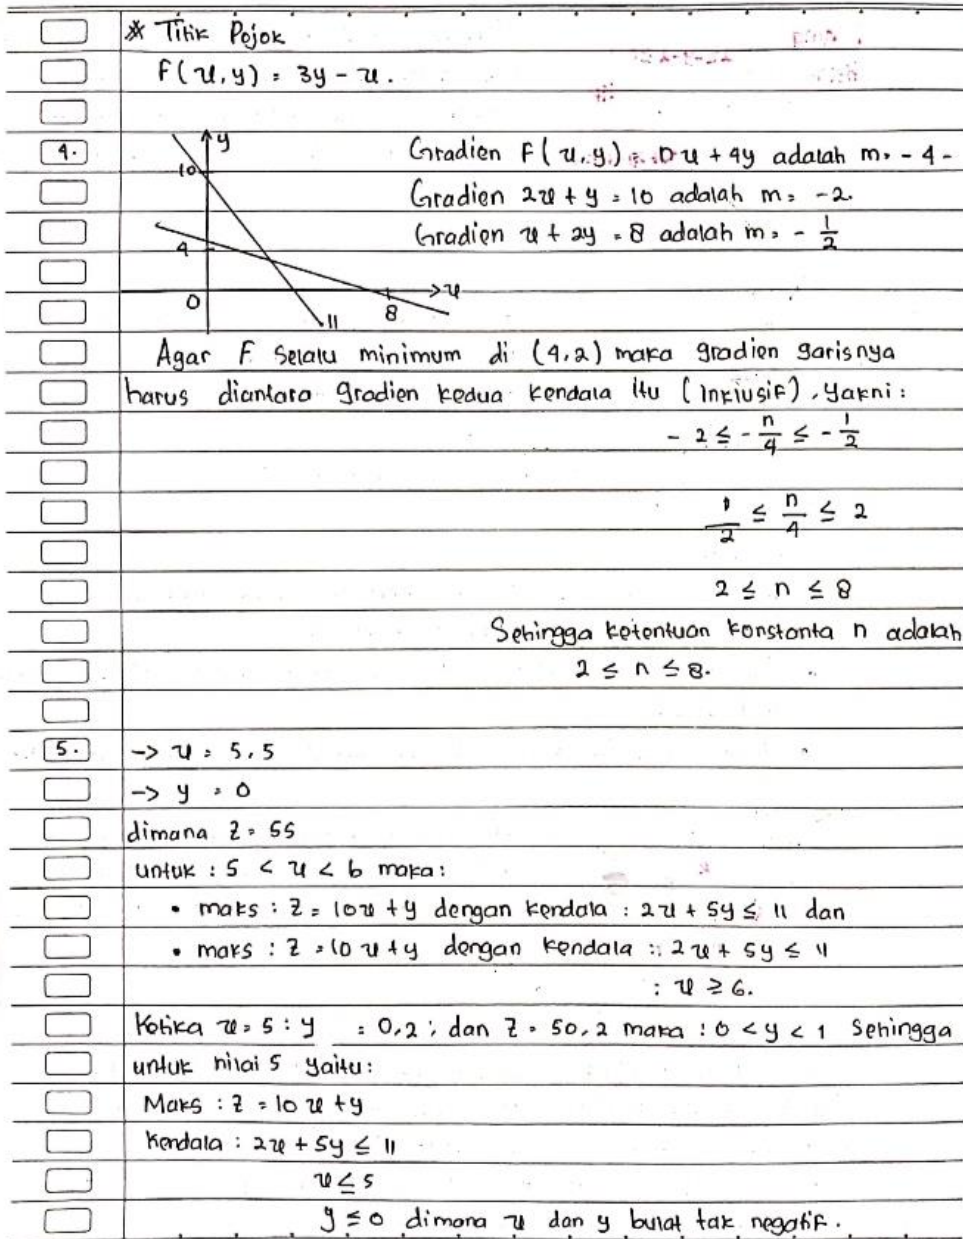 * Titik Pojok
F(x,y) = 3y - x.
4.
y
10
4
0
8
x
11
Gradien F(x,y) = nx + 4y adalah m = - 4 -
Gradien 2x + y = 10 adalah m = -2.
Gradien x + 2y = 8 adalah m = - 1/2
Agar F selalu minimum di (4,2) maka gradien garisnya
harus diantara gradien kedua kendala itu (Inklusif), yakni:
- 2 ≤ - n/4 ≤ - 1/2
1/2 ≤ n/4 ≤ 2
2 ≤ n ≤ 8
Sehingga ketentuan konstanta n adalah
2 ≤ n ≤ 8.
5.
-> x = 5,5
-> y = 0
dimana z = 55
untuk : 5 < x < 6 maka:
• maks : z = 10x + y dengan kendala : 2x + 5y ≤ 11 dan
• maks : z = 10x + y dengan kendala : 2x + 5y ≤ 11
: x ≥ 6.
Ketika x = 5 : y = 0,2 ; dan z = 50,2 maka : 0 < y < 1 sehingga
untuk nilai 5 yaitu:
Maks : z = 10x + y
Kendala : 2x + 5y ≤ 11
x ≤ 5
y ≤ 0 dimana x dan y bulat tak negatif.